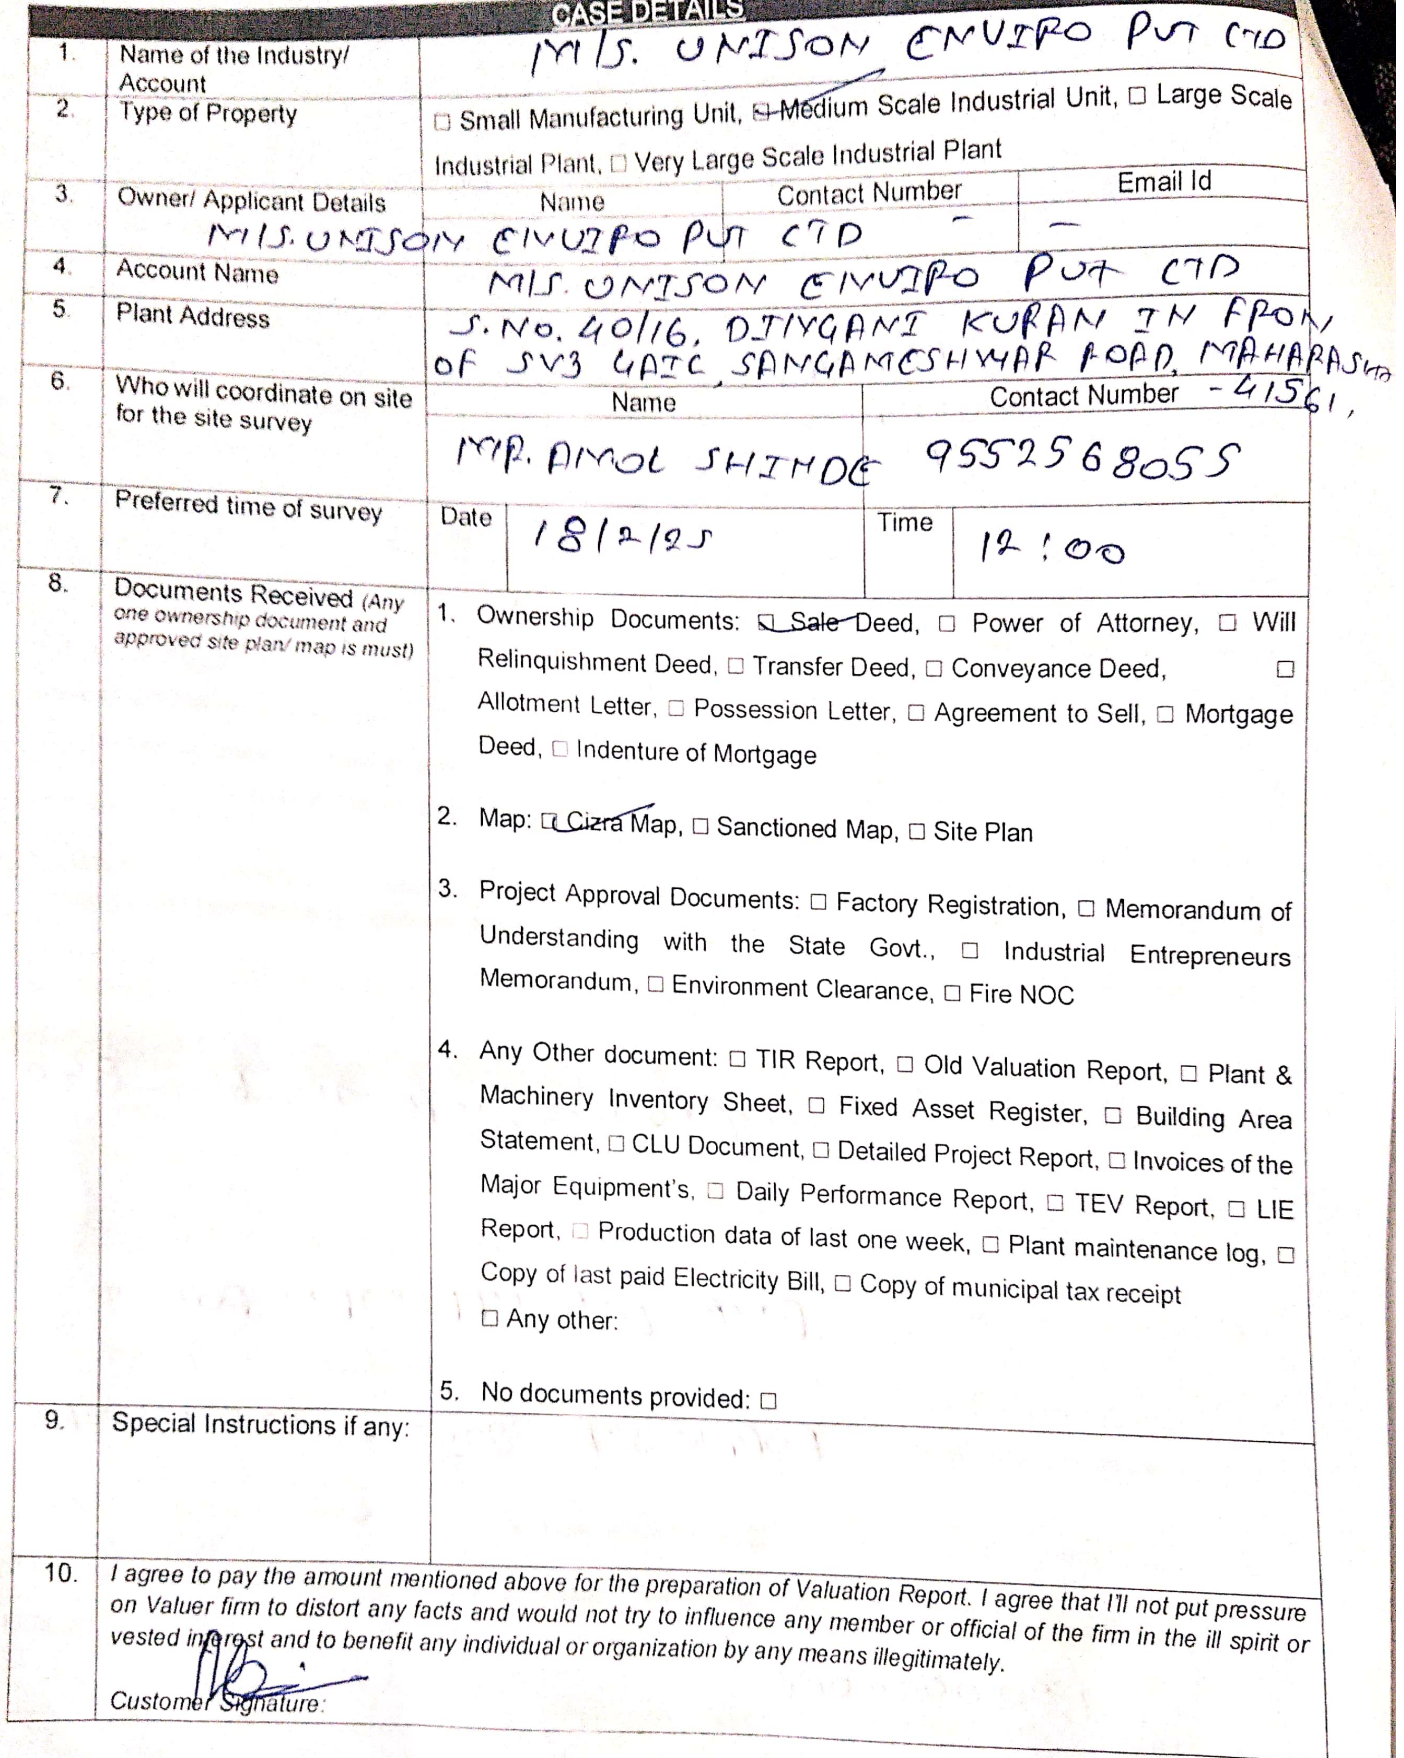 CASE DETAILS
1. Name of the Industry/ Account M/S. UNISON ENVIRO PVT LTD
2. Type of Property ☐ Small Manufacturing Unit, ☑ Medium Scale Industrial Unit, ☐ Large Scale
Industrial Plant, ☐ Very Large Scale Industrial Plant
3. Owner/ Applicant Details Name Contact Number Email Id
M/S. UNISON ENVIRO PVT LTD - -
4. Account Name M/S. UNISON ENVIRO PVT LTD
5. Plant Address S. NO. 40/16, KURAN IN FRON
OF SANGAMESHWAR ROAD, MAHARASHA
- 41561,
6. Who will coordinate on site for the site survey Name Contact Number
MR. AMOL SHINDE 9552568055
7. Preferred time of survey Date 18/2/25 Time 12:00
8. Documents Received (Any
one ownership document and
approved site plan/ map is must)
1. Ownership Documents: ☑ Sale Deed, ☐ Power of Attorney, ☐ Will
Relinquishment Deed, ☐ Transfer Deed, ☐ Conveyance Deed, ☐
Allotment Letter, ☐ Possession Letter, ☐ Agreement to Sell, ☐ Mortgage
Deed, ☐ Indenture of Mortgage
2. Map: ☑ Cizra Map, ☐ Sanctioned Map, ☐ Site Plan
3. Project Approval Documents: ☐ Factory Registration, ☐ Memorandum of
Understanding with the State Govt., ☐ Industrial Entrepreneurs
Memorandum, ☐ Environment Clearance, ☐ Fire NOC
4. Any Other document: ☐ TIR Report, ☐ Old Valuation Report, ☐ Plant &
Machinery Inventory Sheet, ☐ Fixed Asset Register, ☐ Building Area
Statement, ☐ CLU Document, ☐ Detailed Project Report, ☐ Invoices of the
Major Equipment's, ☐ Daily Performance Report, ☐ TEV Report, ☐ LIE
Report, ☐ Production data of last one week, ☐ Plant maintenance log, ☐
Copy of last paid Electricity Bill, ☐ Copy of municipal tax receipt
☐ Any other:
5. No documents provided: ☐
9. Special Instructions if any:
10. I agree to pay the amount mentioned above for the preparation of Valuation Report. I agree that I'll not put pressure
on Valuer firm to distort any facts and would not try to influence any member or official of the firm in the ill spirit or
vested interest and to benefit any individual or organization by any means illegitimately.
Customer Signature: